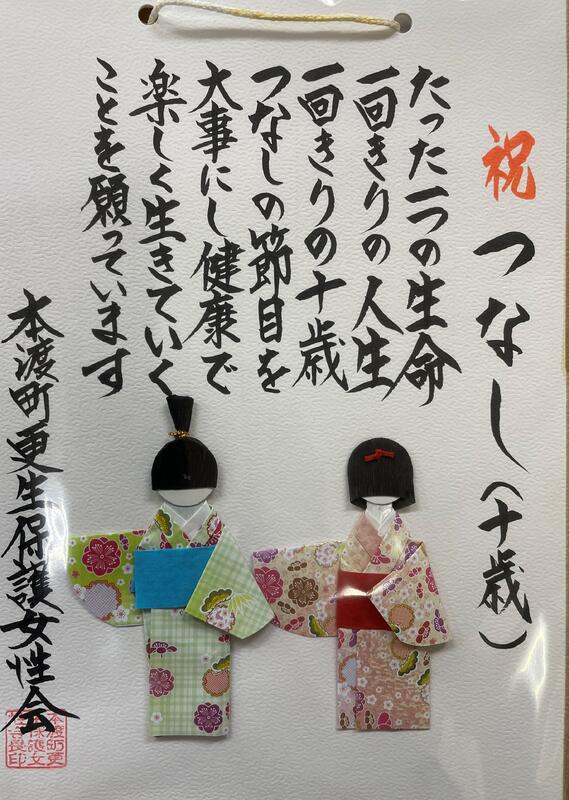 祝 つなし（十歳）
たった一つの生命
一回きりの人生
一回きりの十歳
つなしの節目を
大事にし健康で
楽しく生きていく
ことを願っています
本渡町更生保護女性会